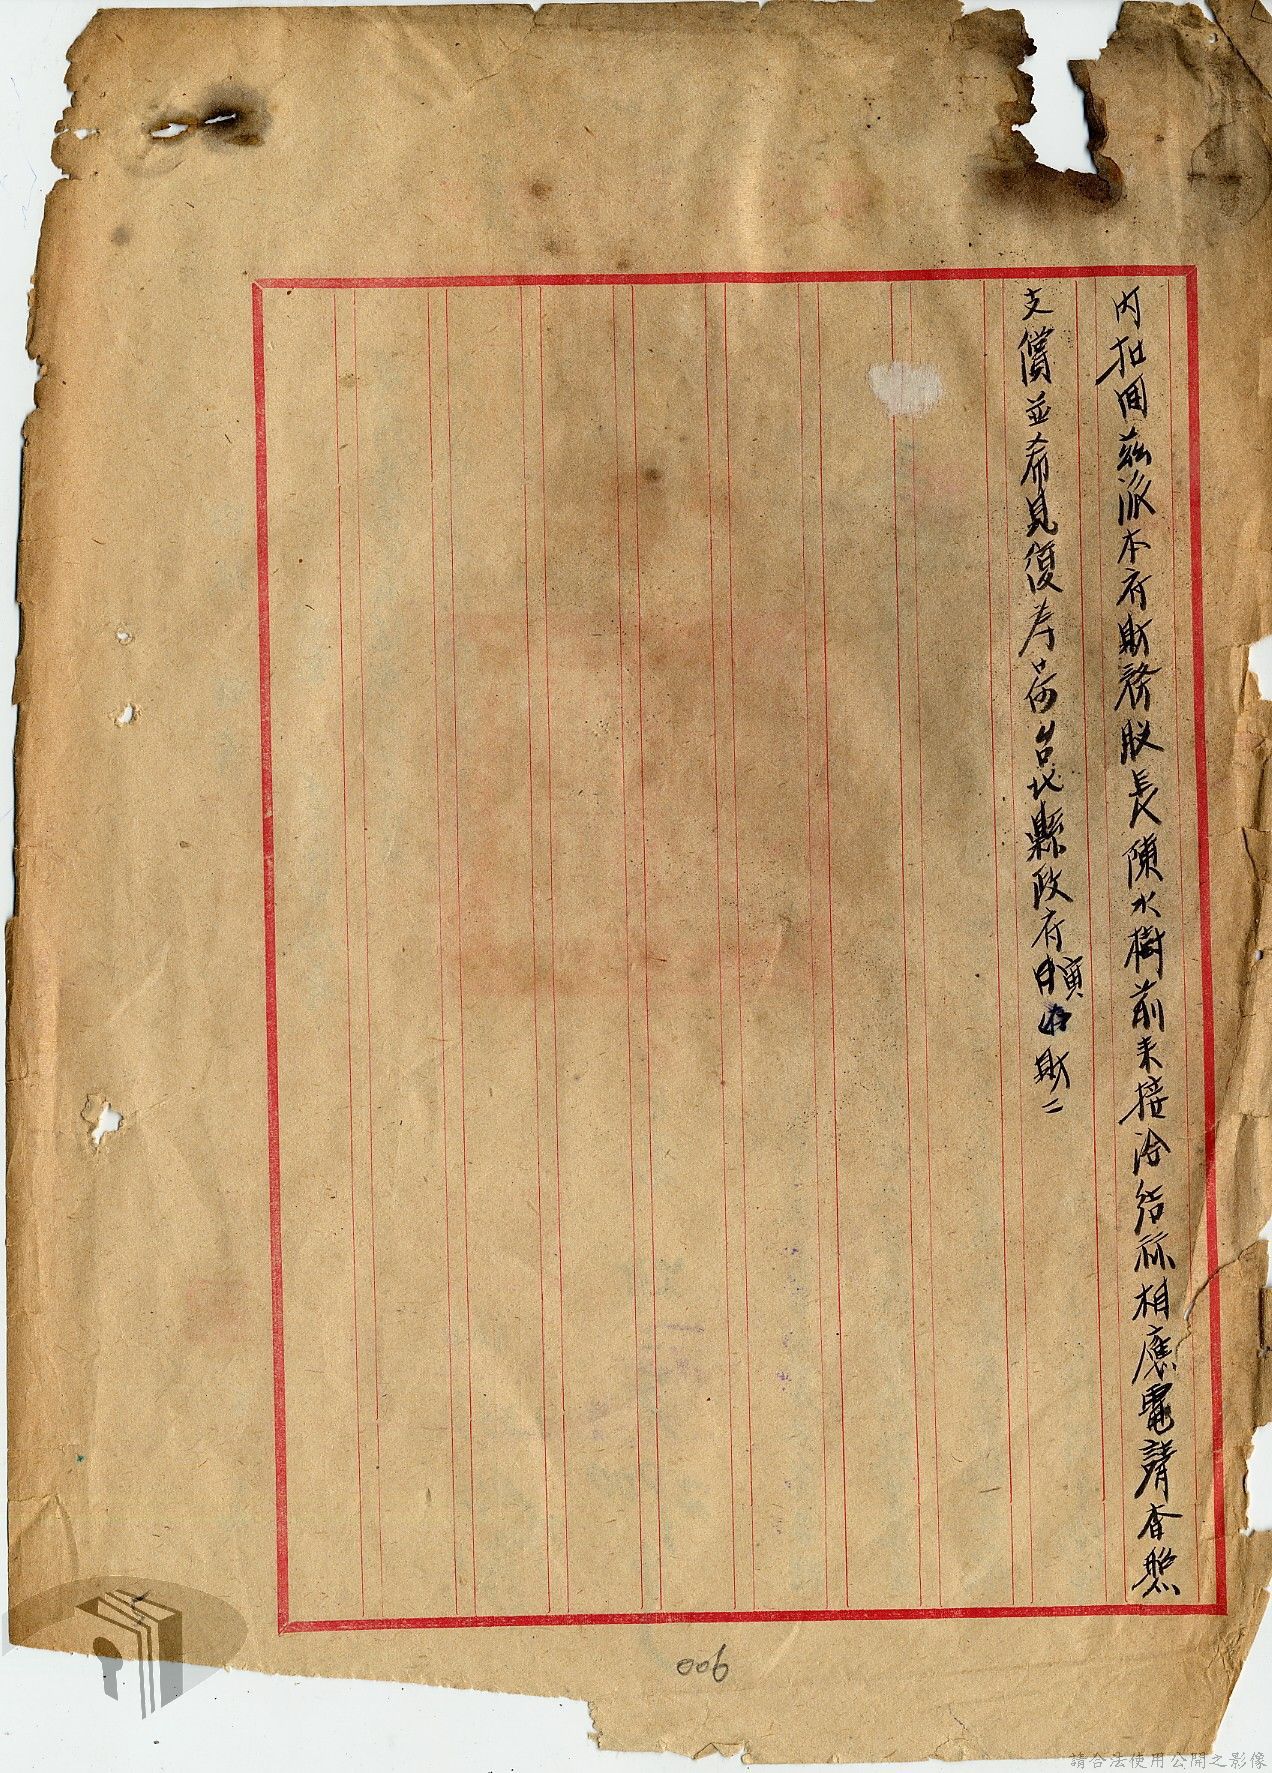 內扣回茲派本府財務股長陳水樹前來接洽結祘相應電請查照
支償並希見復為荷台北縣政府寅財二
006
請合法使用公開之影像